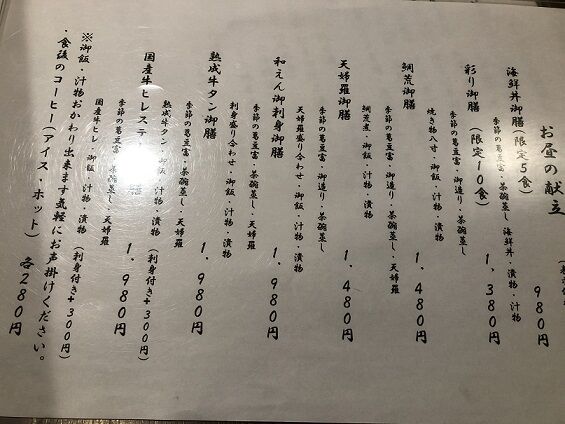 お昼の献立
海鮮丼御膳(限定5食)
980円
季節の葛豆富・茶碗蒸し・海鮮丼・漬物・汁物
彩り御膳(限定10食)
1,380円
季節の葛豆富・御造り・茶碗蒸し
焼き物八寸・御飯・汁物・漬物
鯛荒御膳
1,480円
季節の葛豆富・御造り・茶碗蒸し・天婦羅
鯛荒煮・御飯・汁物・漬物
天婦羅御膳
1,480円
季節の葛豆富・御造り・茶碗蒸し
天婦羅盛り合わせ・御飯・汁物・漬物
和えん御刺身御膳
1,980円
季節の葛豆富・茶碗蒸し・天婦羅
刺身盛り合わせ・御飯・汁物・漬物
熟成牛タン御膳
1,980円
季節の葛豆富・茶碗蒸し・天婦羅
熟成牛タン・御飯・汁物・漬物(刺身付き+300円)
国産牛ヒレステ 膳
1,980円
季節の葛豆富・茶碗蒸し・天婦羅
国産牛ヒレ・御飯・汁物・漬物(刺身付き+300円)
※御飯・汁物おかわり出来ます気軽にお声掛けください。
・食後のコーヒー(アイス・ホット) 各280円